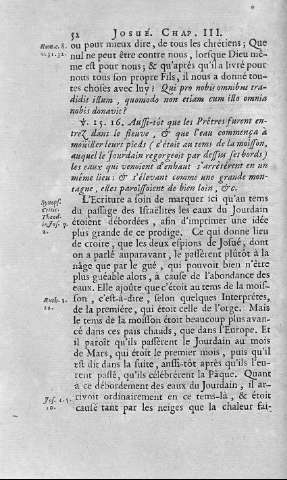 52 JOSUÉ. CHAP. III.
Rom. 8. v. 31. 32.
ou pour mieux dire, de tous les chrétiens; Que
nul ne peut être contre nous, lorsque Dieu mê-
me est pour nous; & qu'après qu'il a livré pour
nous tous son propre Fils, il nous a donné tou-
tes choses avec luy? Qui pro nobis omnibus tra-
didit illum, quomodo non etiam cum illo omnia
nobis donavit?
℣. 15. 16. Aussi-tôt que les Prêtres furent en-
trez dans le fleuve, & que l'eau commença à
mouiller leurs pieds (c'étoit au tems de la moisson,
auquel le Jourdain regorgeoit par dessus ses bords)
les eaux qui venoient d'enhaut s'arrêterent en un
même lieu: & s'élevant comme une grande mon-
tagne, elles paroissoient de bien loin, & c.
Synops. Critic. Theod. in Jos. q. 2.
L'Ecriture a soin de marquer ici qu'au tems
du passage des Israelites les eaux du Jourdain
étoient débordées, afin d'imprimer une idée
plus grande de ce prodige. Ce qui donne lieu
de croire, que les deux espions de Josué, dont
on a parlé auparavant, le passèrent plutôt à la
nâge que par le gué, qui pouvoit bien n'être
plus guéable alors, à cause de l'abondance des
eaux. Elle ajoûte que c'étoit au tems de la mois-
son, c'est-à-dire, selon quelques Interprètes,
de la première, qui étoit celle de l'orge. Mais
le tems de la moisson étoit beaucoup plus avan-
cé dans ces pais chauds, que dans l'Europe. Et
il paroît qu'ils passèrent le Jourdain au mois
de Mars, qui étoit le premier mois, puis qu'il
est dit dans la suite, aussi-tôt après qu'ils l'eu-
rent passé, qu'ils célébrèrent la Pâque. Quant
à ce débordement des eaux du Jourdain, il ar-
Jos. 1. 5. 10.
rivoit ordinairement en ce tems-là, & étoit
causé tant par les neiges que la chaleur fai-